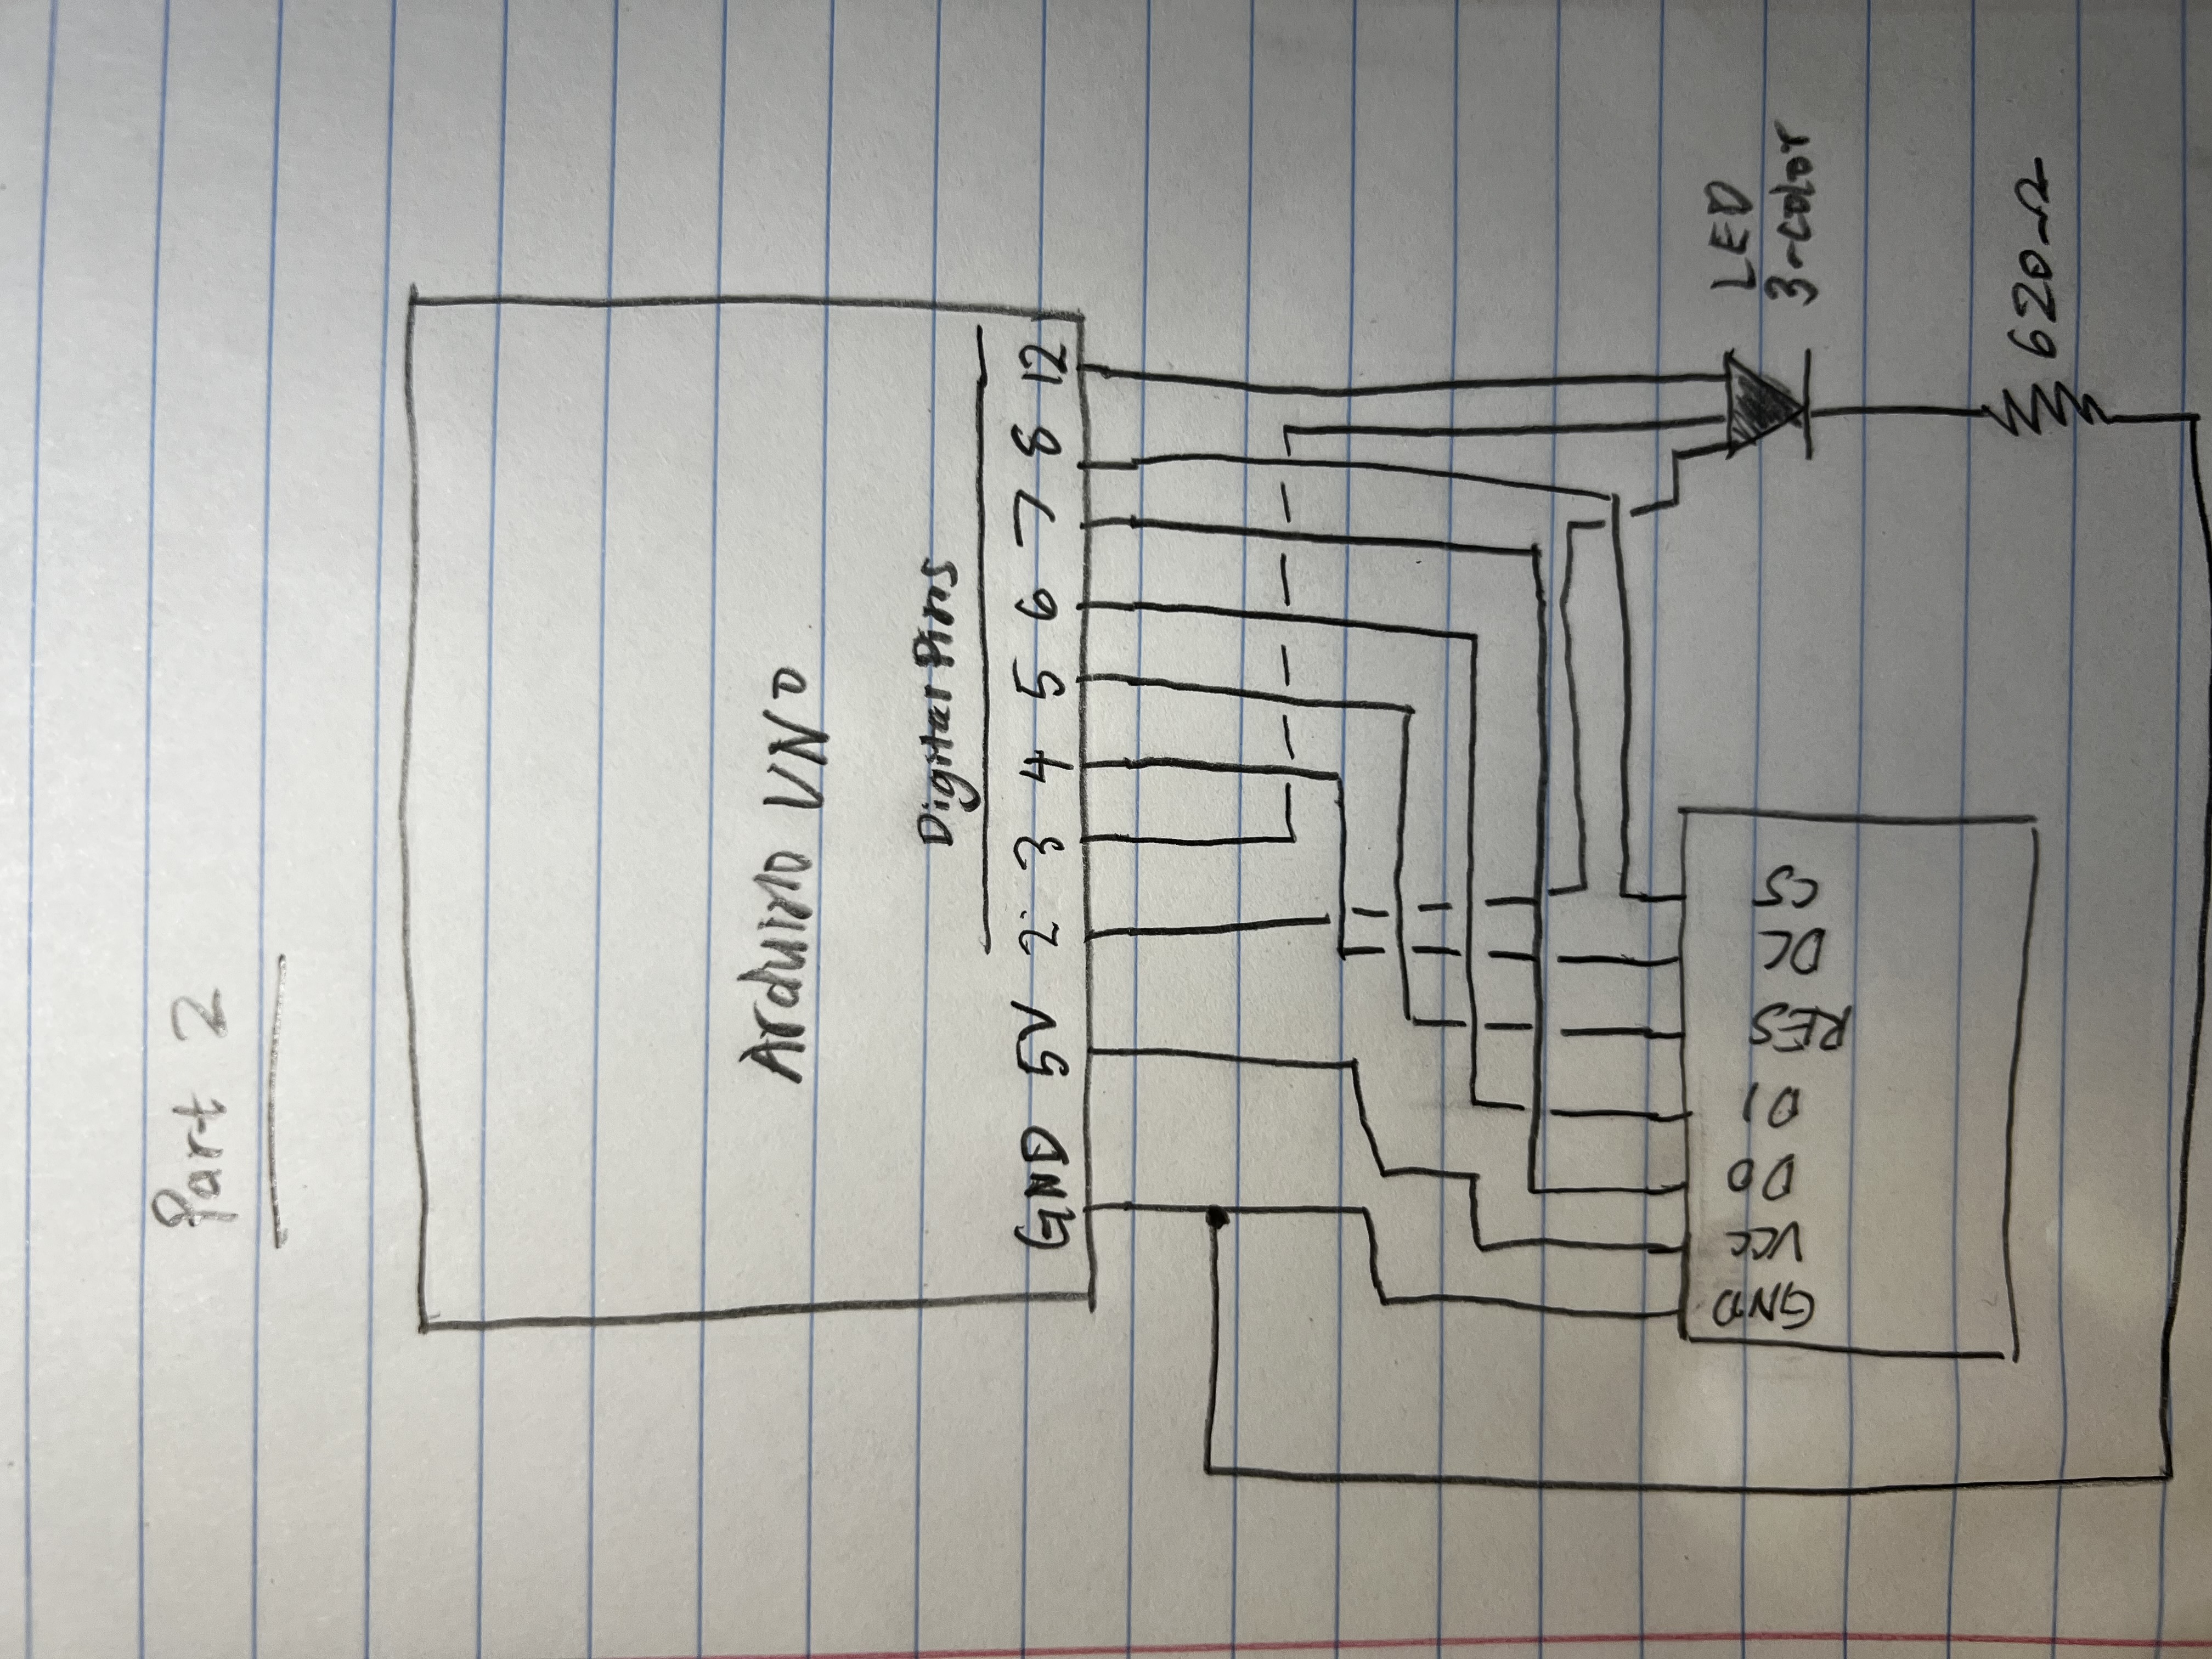 Part 2
Arduino UNO
Digital Pins
GND 5V 2 3 4 5 6 7 8 12
GND VCC D0 D1 RES DC CS
LED
3-color
620Ω